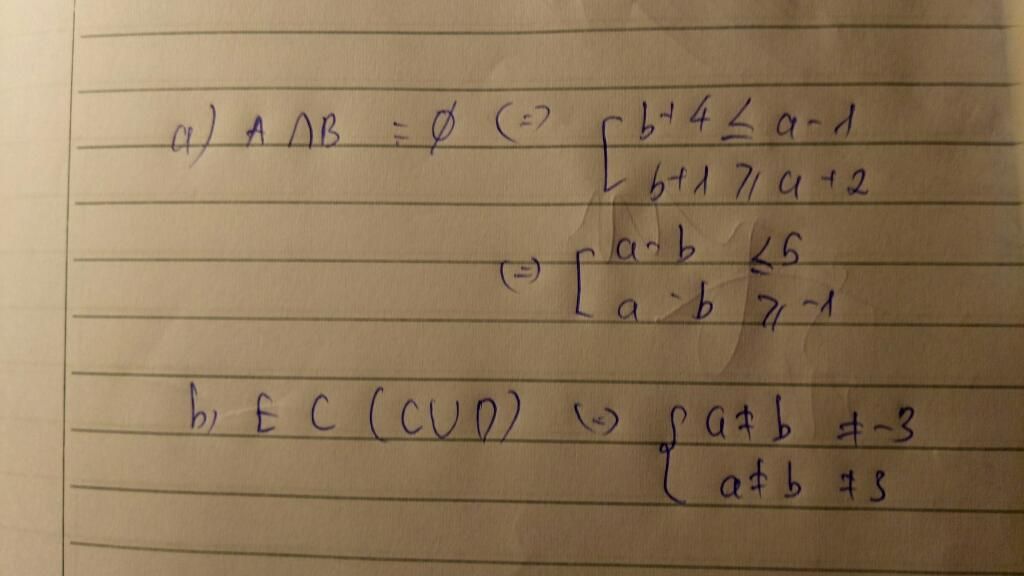 a) A ∩ B = ∅ (=) [ b+4 ≤ a-1
b+1 ≥ a+2
(=) [ a-b ≤ 5
a-b ≥ -1
b, E C (CUD) (=) { a ≠ b ≠ -3
a ≠ b ≠ 3